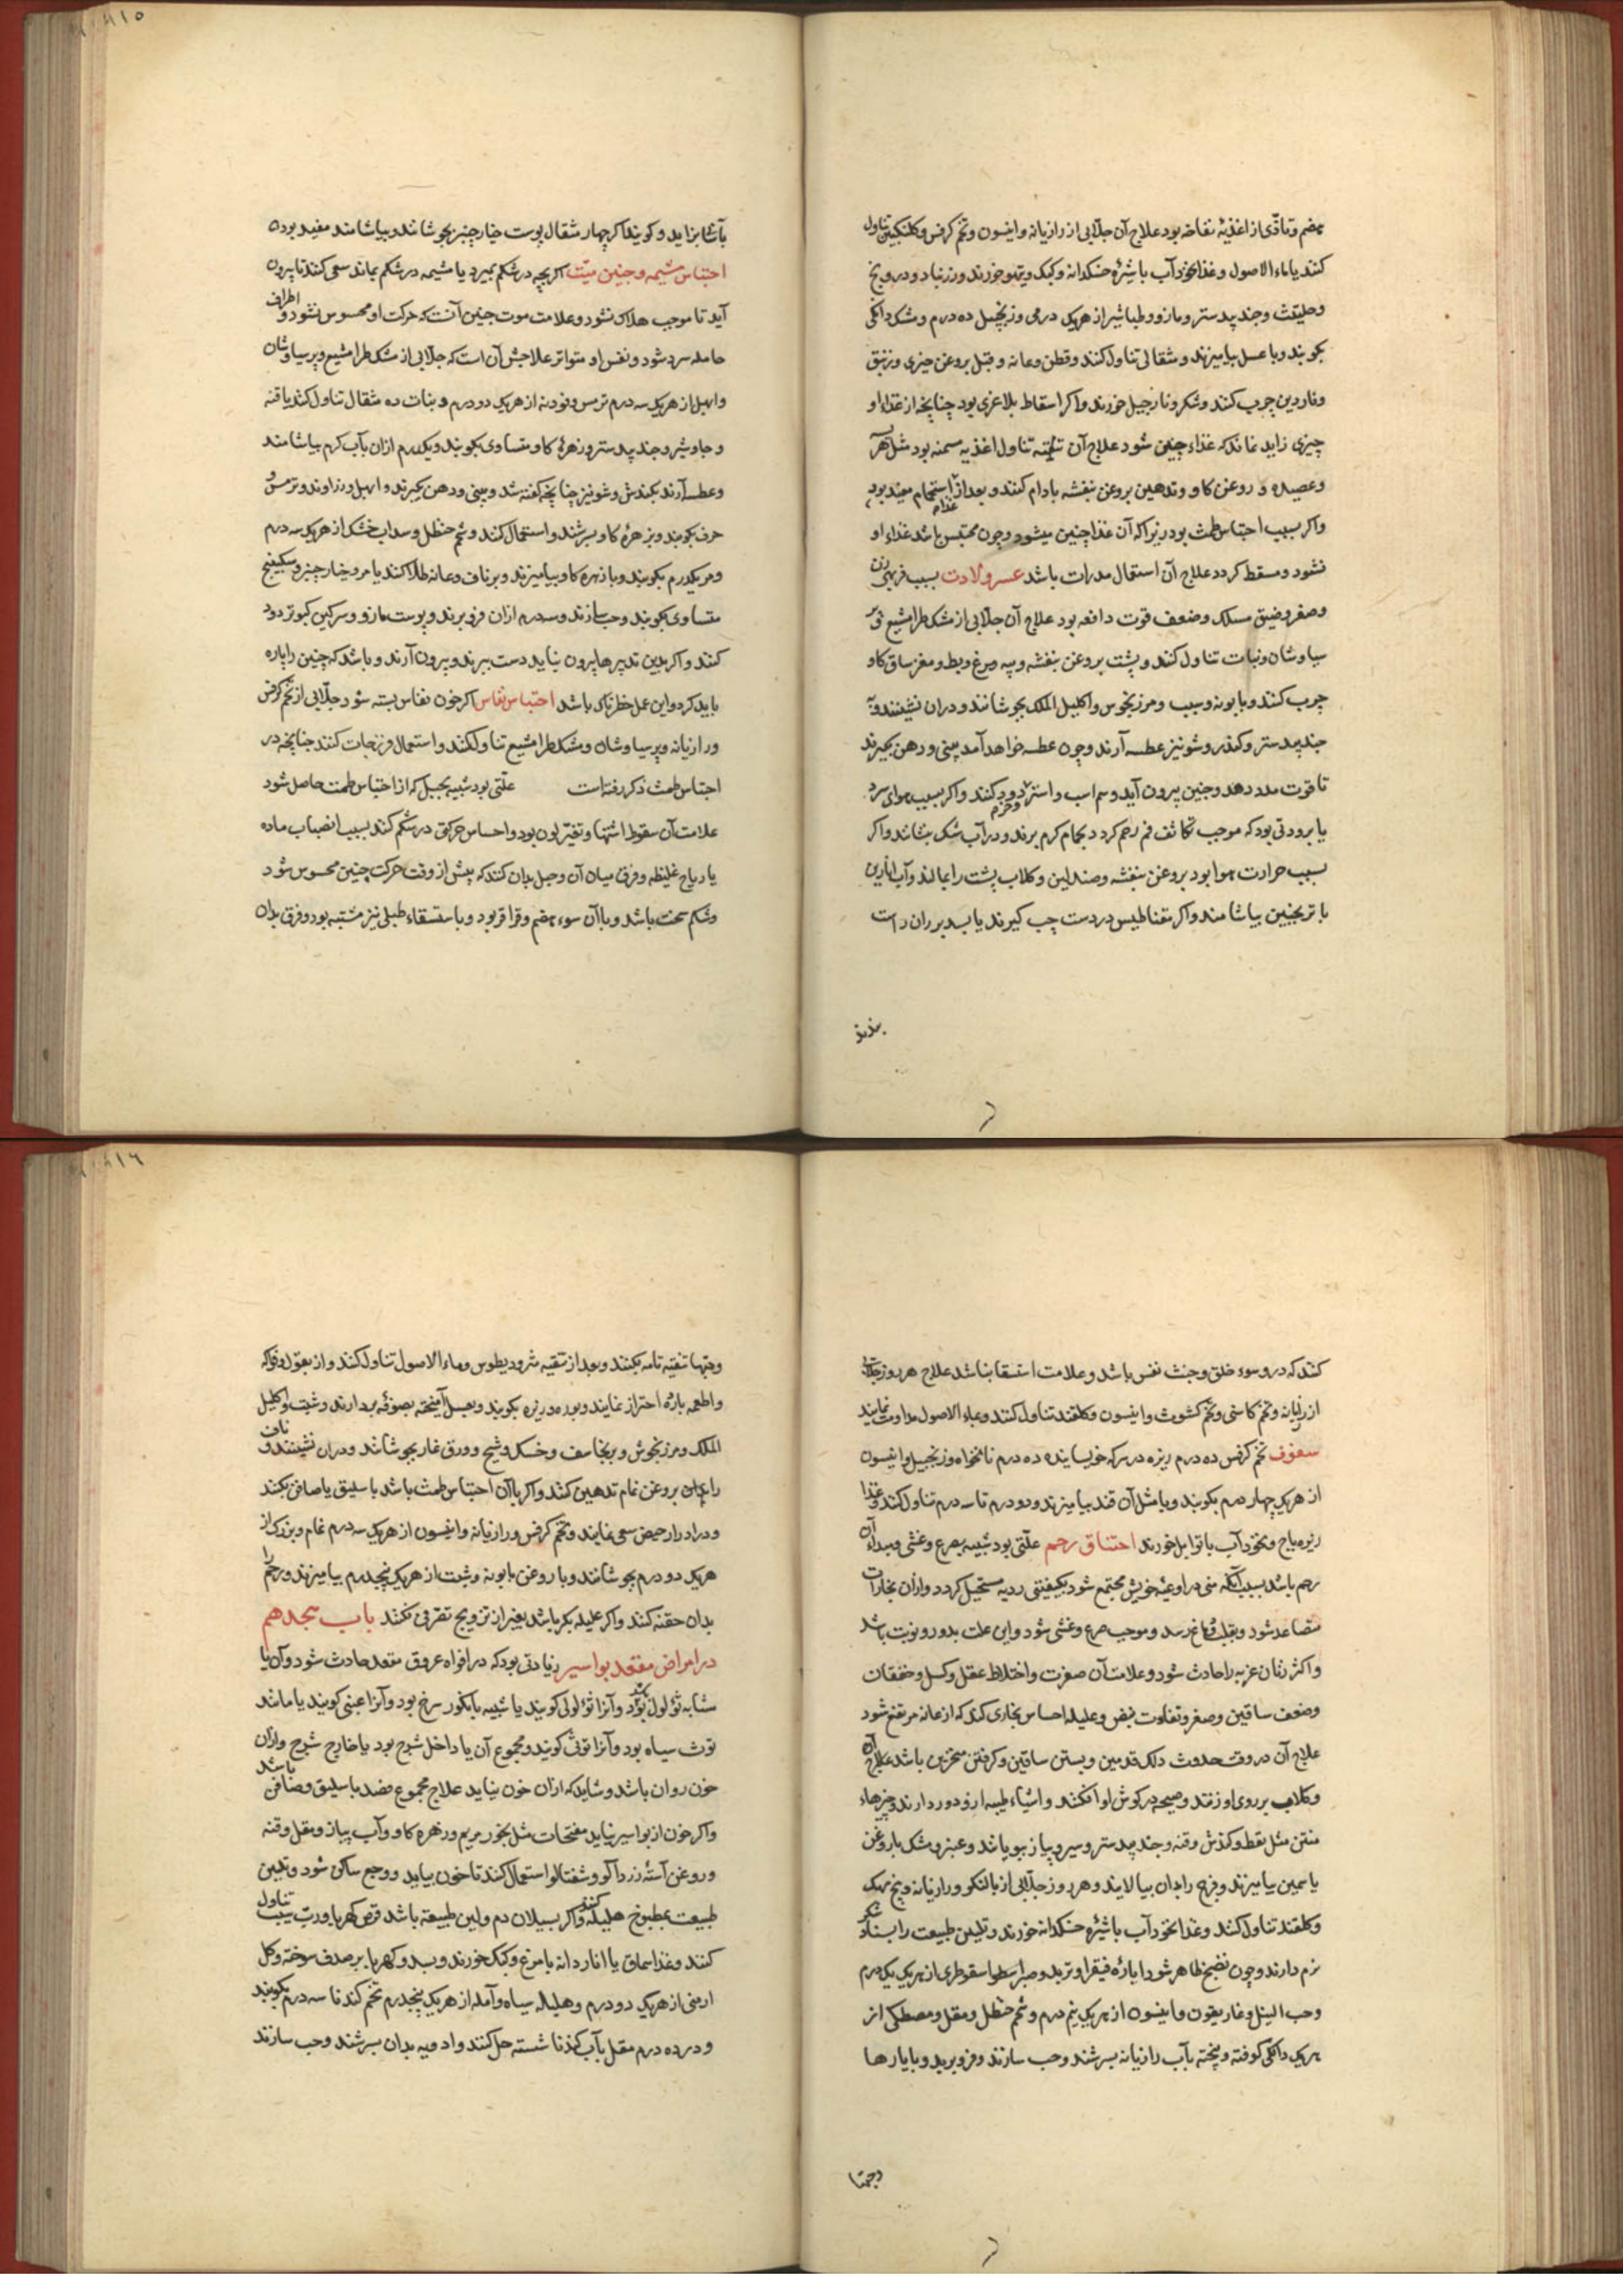 هضم و تأذی از اغذیهٔ نفاخه بود علاج آن جلابی از رازیانه و انیسون و تخم کرفس و گلنگبین تناول
کنند یا ماء الاصول و غذا نخود آب با شیرهٔ خسکدانه و کبک و تیهو خورند و زرنباد و درونج
و حلیتیث و جندبیدستر و مازو و طباشیر از هریک درمی و زنجبیل ده درم و مشک دانگی
بکوبند و با عسل بیامیزند و مثقالی تناول کنند و قطن و عانه و قبل بروغن خیری و زنبق
و ناردین چرب کنند و شکر و نارجیل خورند و اگر اسقاط بلاغری بود چنانچه از غذاء او
چیزی زاید نماند که غذاء جنین شود علاج آن تناول اغذیه مسمنه بود مثل هریسه
و عصیده و روغن کاو و تدهین بروغن بنفشه بادام کنند و بعد از غذا استحمام مفید بود
و اگر بسبب احتباس طمث بود زیرا که آن غذا جنین میشود و چون محتبس باشد غذاء او
نشود و مسقط کردد علاج آن استعمال مدرات باشد عسر ولادت بسبب فربهی زن
و صغر و ضیق مسلک و ضعف قوت دافعه بود علاج آن جلابی از مشکطرامشیع و پر
سیاوشان و نبات تناول کنند و پشت بروغن بنفشه و پیه مرغ و بط و مغز ساق کاو
چرب کنند و بابونه و سبب و مرزنجوش و اکلیل الملک بجوشانند و در آن نشینند و به
جندبیدستر و کندر و شونیز عطسه آرند و چون عطسه خواهد آمد بینی و دهن بگیرند
تا قوت مدد دهد و جنین بیرون آید و سم اسب و استر و خر دود کنند و اگر بسبب هوای سرد
یا برودتی بود که موجب تکاثف فم رحم کردد بحمام گرم برند و در آب شک بنشانند و اگر
بسبب حرارت هوا بود بروغن بنفشه و صندلین و گلاب پشت را بمالند و آب انارین
با ترنجبین بیاشامند و اگر مغناطیس در دست چپ گیرند یا بسد بر ران راست
بندند
۸۱۵
بآسانی بزاید و گویند اگر چهار مثقال پوست خیارچنبر بجوشانند و بیاشامند مفید بود
احتباس مشیمه و جنین میّت اگر بچه در شکم بمیرد یا مشیمه در شکم بماند سعی کنند تا بیرون
آید تا موجب هلاک نشود و علامت موت جنین آنست که حرکت او محسوس نشود و اطراف
حامله سرد شود و نفس او متواتر علاجش آن است که جلابی از مشکطرامشیع و پرسیاوشان
و ابهل از هریک سه درم ترمس و فودنه از هریک دو درم و نبات ده مثقال تناول کند یا قنه
و جاوشیر و جندبیدستر و زهرهٔ کاو متساوی بکوبند و یکدرم از آن بآب گرم بیاشامند
و عطسه آرند بکندش و شونیز چنانچه گفته شد و بینی و دهن بگیرند و ابهل و زراوند و ترمس و
حرف بکوبند و بزهرهٔ کاو بسرشند و استعمال کنند و شحم حنظل و سداب خشک از هریک سه درم
و مر یکدرم بکوبند و با زهره کاو بیامیزند و بر ناف و عانه طلا کنند یا مر و خیارچنبر و سکبینج
متساوی بکوبند و حب سازند و سه درم از آن فرو برند و پوست مازو و سرکین کبوتر دود
کنند و اگر بدین تدبیرها بیرون نیاید دست ببرند و بیرون آرند و باشد که جنین را پاره
باید کرد و این عمل خطرناک باشد احتباس نفاس اگر خون نفاس بسته شود جلابی از تخم کرفس
و رازیانه و پرسیاوشان و مشکطرامشیع تناول کند و استعمال فرزجات کنند چنانچه در
احتباس طمث ذکر رفته است علتی بود شبیه بحبل که از احتباس طمث حاصل شود
علامت آن سقوط اشتها و تغیر لون بود و احساس حرکتی در شکم کند بسبب انصباب ماده
یا ریاح غلیظه و فرق میان آن و حبل بدان کنند که پیش از وقت حرکت جنین محسوس شود
و شکم سخت باشد و با آن سوء هضم و قراقر بود و با استسقاء طبلی نیز مشتبه بود و فرق بدان
کنند که درو سوء خلق و خبث نفس باشد و علامت استسقا نباشد علاج هر روز جلابی
از رازیانه و تخم کاسنی و تخم کشوث و انیسون و گلقند تناول کنند و بماء الاصول مداومت نمایند
سفوف تخم کرفس ده درم زیره در سرکه خویسانیده ده درم نانخواه و زنجبیل و انیسون
از هریک چهار درم بکوبند و با مثل آن قند بیامیزند و دو درم تا سه درم تناول کنند و غذا
زیره باج و نخود آب با توابل خورند اختناق رحم علتی بود شبیه بصرع و غشی و مبداء آن
رحم باشد بسبب آنکه منی در اوعیهٔ خویش مجتمع شود بکیفیتی ردیه مستحیل کردد و از آن بخارات
متصاعد شود و بقلب و دماغ رسد و موجب صرع و غشی شود و این علت بدور و نوبت باشد
و اکثر زنان عزبه را حادث شود و علامت آن صفرت و اختلاط عقل و کسل و خفقان
و ضعف ساقین و صغر و تفاوت نبض و علیله احساس بخاری کند که از عانه مرتفع شود
علاج آن در وقت حدوث دلک قدمین و بستن ساقین و گرفتن منخرین باشد علاج آن
و گلاب بر روی او زنند و صیحه در گوش او افکنند و اشیاء طیبه ازو دور دارند و چیزهاء
منتن مثل نفط و کندش و قنه و جندبیدستر و سیر و پیاز ببویانند و عنبر و مشک با روغن
یاسمین بیامیزند و فرج را بدان بیالایند و هر روز جلابی از بالنکو و رازیانه و بیخ مهک
و گلقند تناول کند و غذا نخود آب با شیره خسکدانه خورند و تلیین طبیعت را بسنا و شکر
نرم دارند و چون نضج ظاهر شود ایاره فیقرا و تربد و صبر اسطوا سقوطری از هریک یک درم
و حب النیل و غاریقون و انیسون از هریک نیم درم و شحم حنظل و مقل و مصطکی از
هریک دانگی کوفته و بیخته بآب رازیانه بسرشند و حب سازند و فرو برند و بایارها
و حبها
۸۱۶
و حبها تنقیه تامه بکنند و بعد از تنقیه مثرودیطوس و ماء الاصول تناول کنند و از بقول و فواکه
و اطعمه بارده احتراز نمایند و بوره و زیره بکوبند و بعسل آمیخته بصوفه بردارند و شبت و اکلیل
الملک و مرزنجوش و برنجاسف و خسک و شیح و ورق غار بجوشانند و در آن نشینند و ناف
را بدان بروغن نمام تدهین کنند و اگر با آن احتباس طمث باشد باسلیق یا صافن بکنند
و در ادرار حیض سعی نمایند و تخم کرفس و رازیانه و انیسون از هریک سه درم نمام و بزرک از
هریک دو درم بجوشانند و با روغن بابونه و شبت از هریک پنجدرم بیامیزند و رحم را
بدان حقنه کنند و اگر علیله بکر باشد بغیر از تزویج تقربی نکنند باب هجدهم
در امراض مقعد بواسیر زیادتی بود که در افواه عروق مقعد حادث شود و آن یا
مشابه ثؤلول بود و آنرا ثؤلولی گویند یا شبیه بانگور سرخ بود و آنرا عنبی گویند یا مانند
توث سیاه بود و آنرا توثی گویند و مجموع آن یا داخل شرج بود یا خارج شرج و از آن
خون روان باشد و شاید که از آن خون نیاید علاج مجموع فصد باسلیق و صافن باشد
و اگر خون از بواسیر نیاید مفتحات مثل بخور مریم و زهره کاو و آب پیاز و مقل و قنه
و روغن استهٔ زردآلو و شفتالو استعمال کنند تا خون بیاید و وجع ساکن شود و تلیین
طبیعت بمطبوخ هلیله کنند و اگر بسیلان دم و لین طبیعت باشد قرص کهربا و رب سیب تناول
کنند و غذا سماق یا اناردانه با مرغ و کبک خورند و بسد و کهربا بر صدف سوخته و گل
ارمنی از هریک دو درم و هلیله سیاه و آمله از هریک پنجدرم تخم کندنا سه درم بکوبند
و در ده درم مقل بآب کندنا شسته حل کنند و ادویه بدان بسرشند و حب سازند